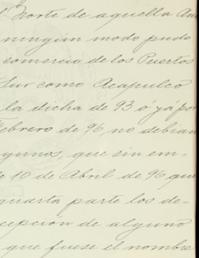 Norte de aquella Am
ningun modo pudo
comercio de los Puertos
Sur como Acapulco
la dicha de 93 o ya por
Febrero de 96 no debian
gunos, que sin em-
e 10 de Abril de 96 que
quarta parte los de-
cepcion de alguno
que fuese el nombre